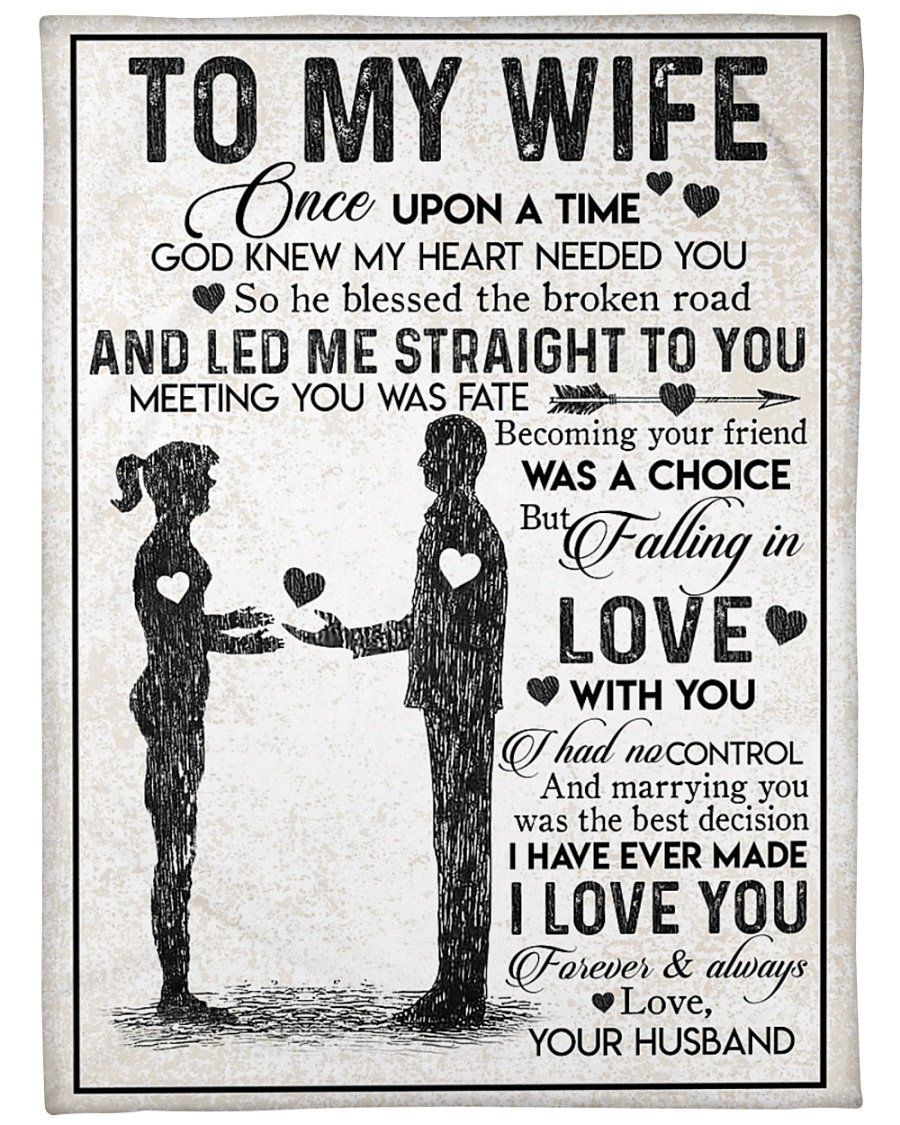 TO MY WIFE
Once UPON A TIME
GOD KNEW MY HEART NEEDED YOU
So he blessed the broken road
AND LED ME STRAIGHT TO YOU
MEETING YOU WAS FATE
Becoming your friend
WAS A CHOICE
But Falling in
LOVE
WITH YOU
I had no CONTROL
And marrying you
was the best decision
I HAVE EVER MADE
I LOVE YOU
Forever & always
Love,
YOUR HUSBAND